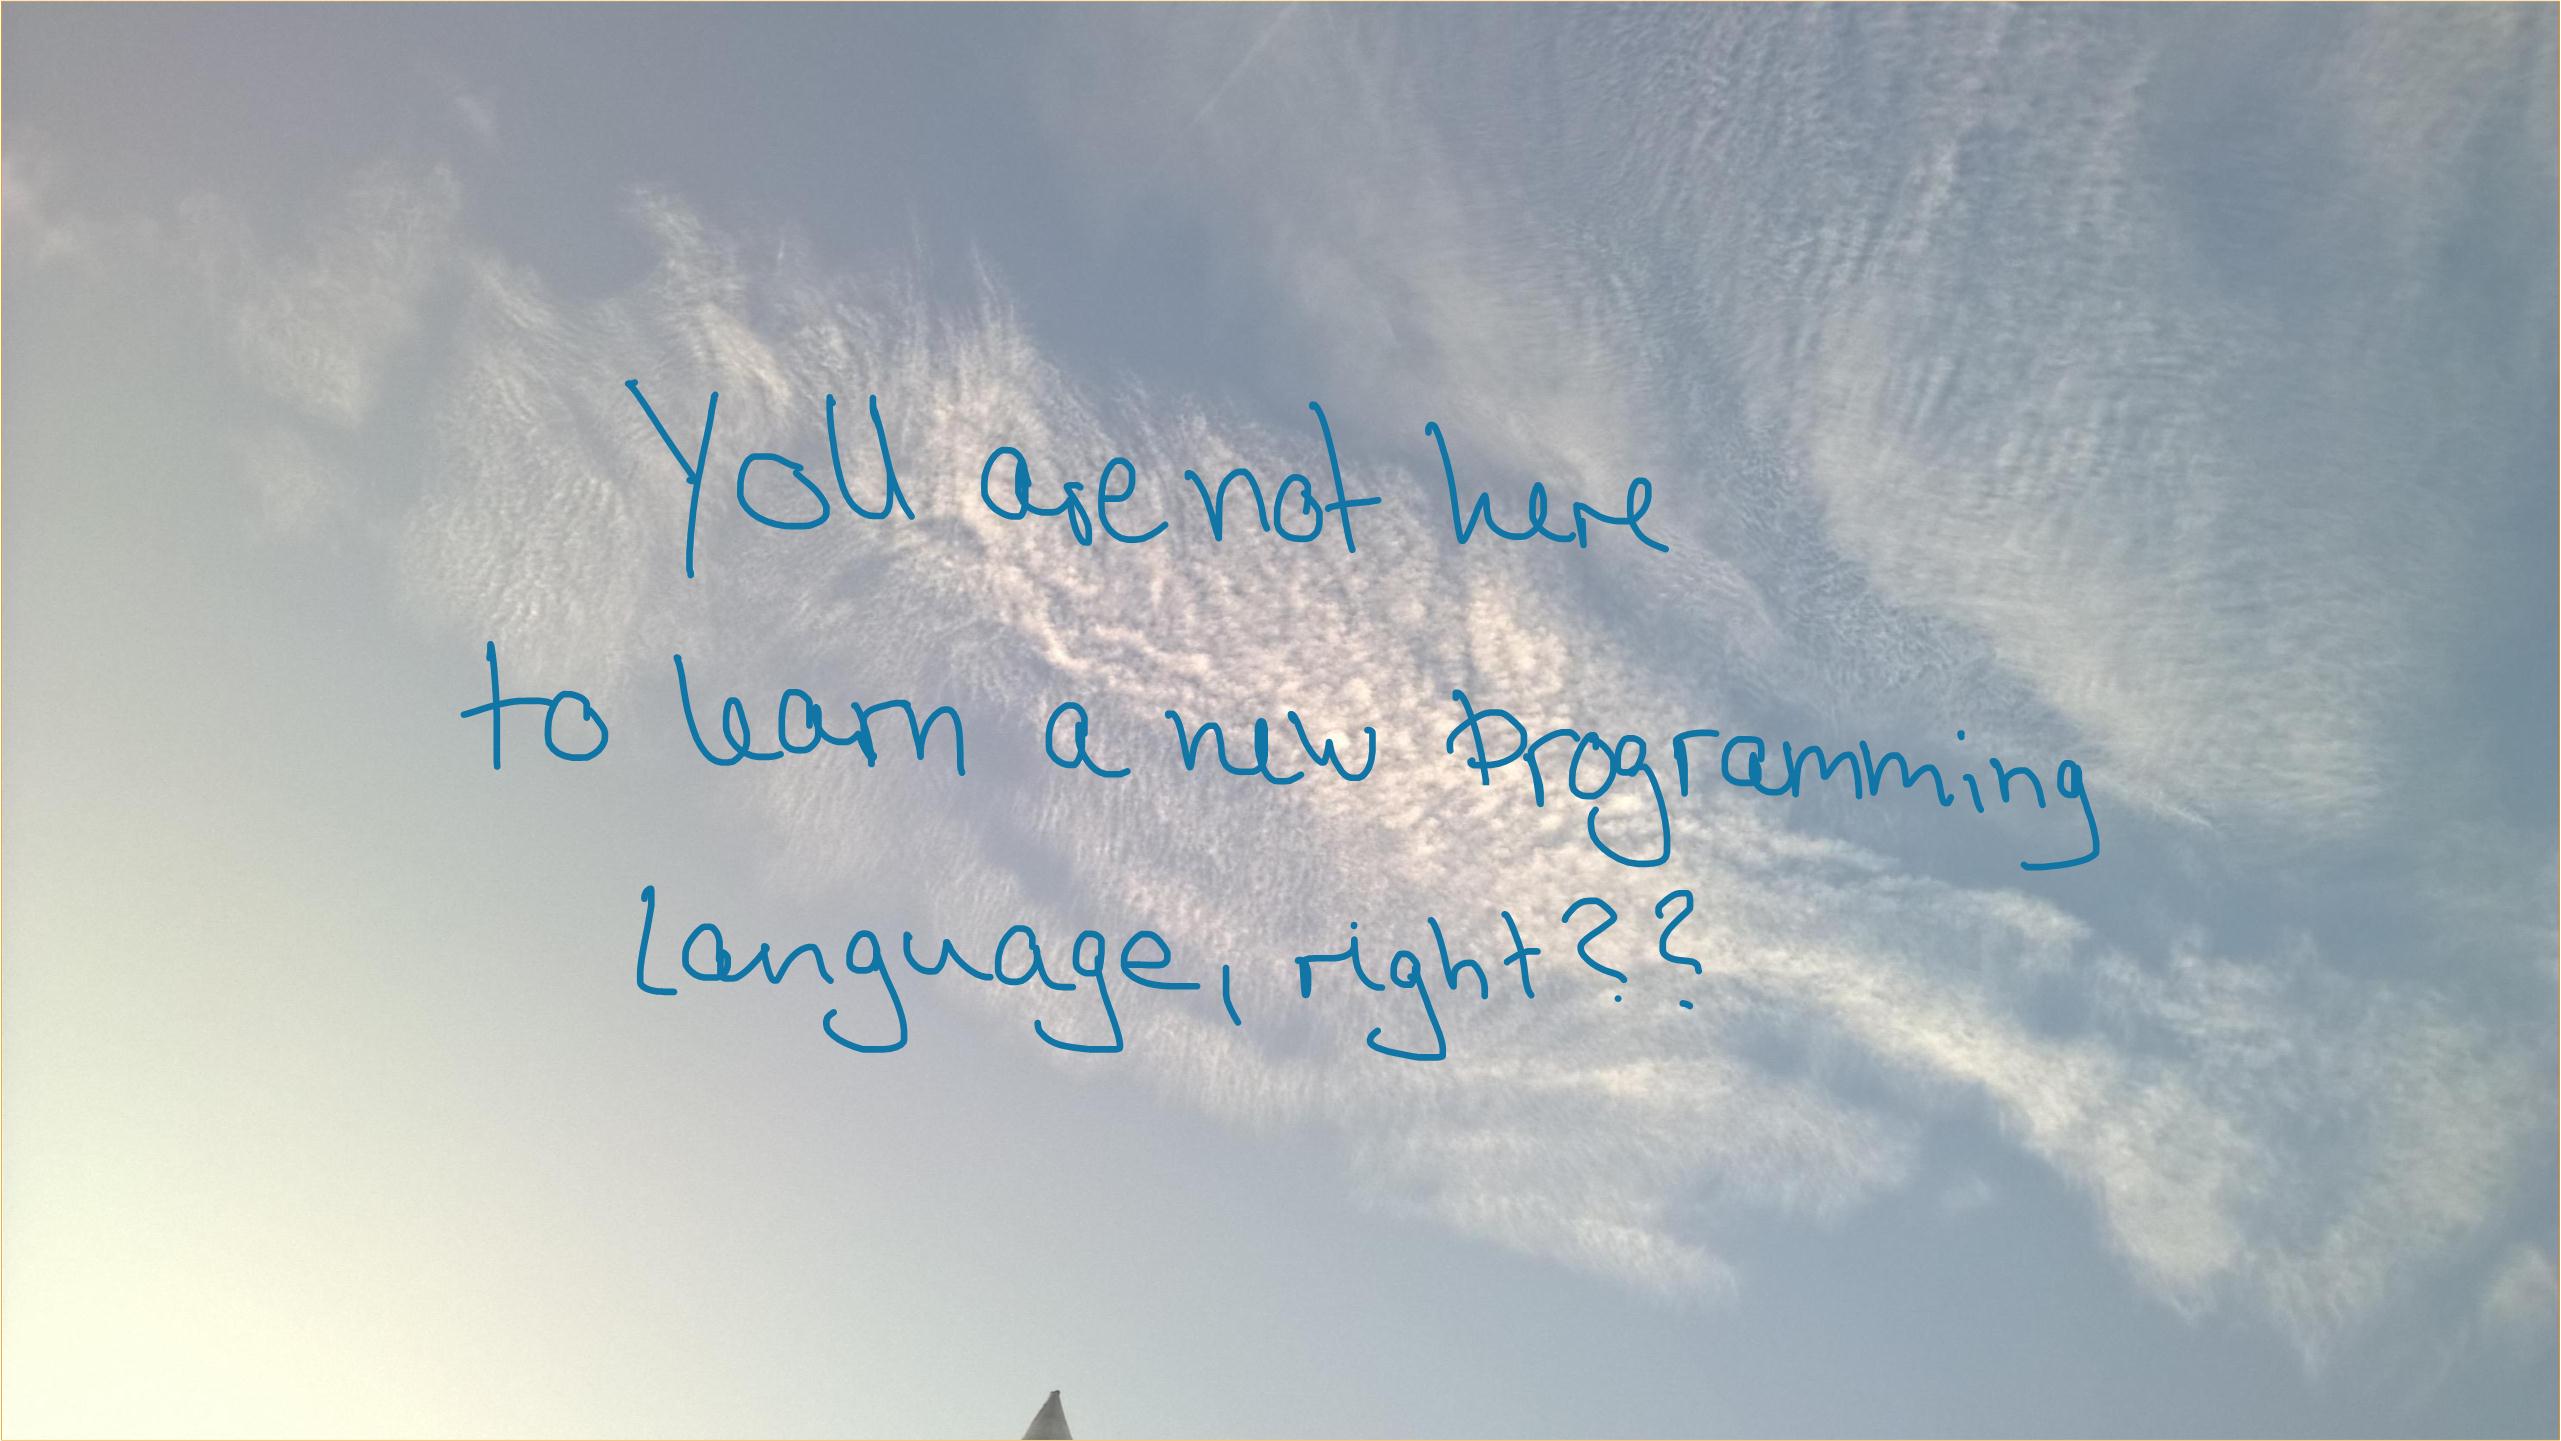 You are not here
to learn a new programming
language, right??